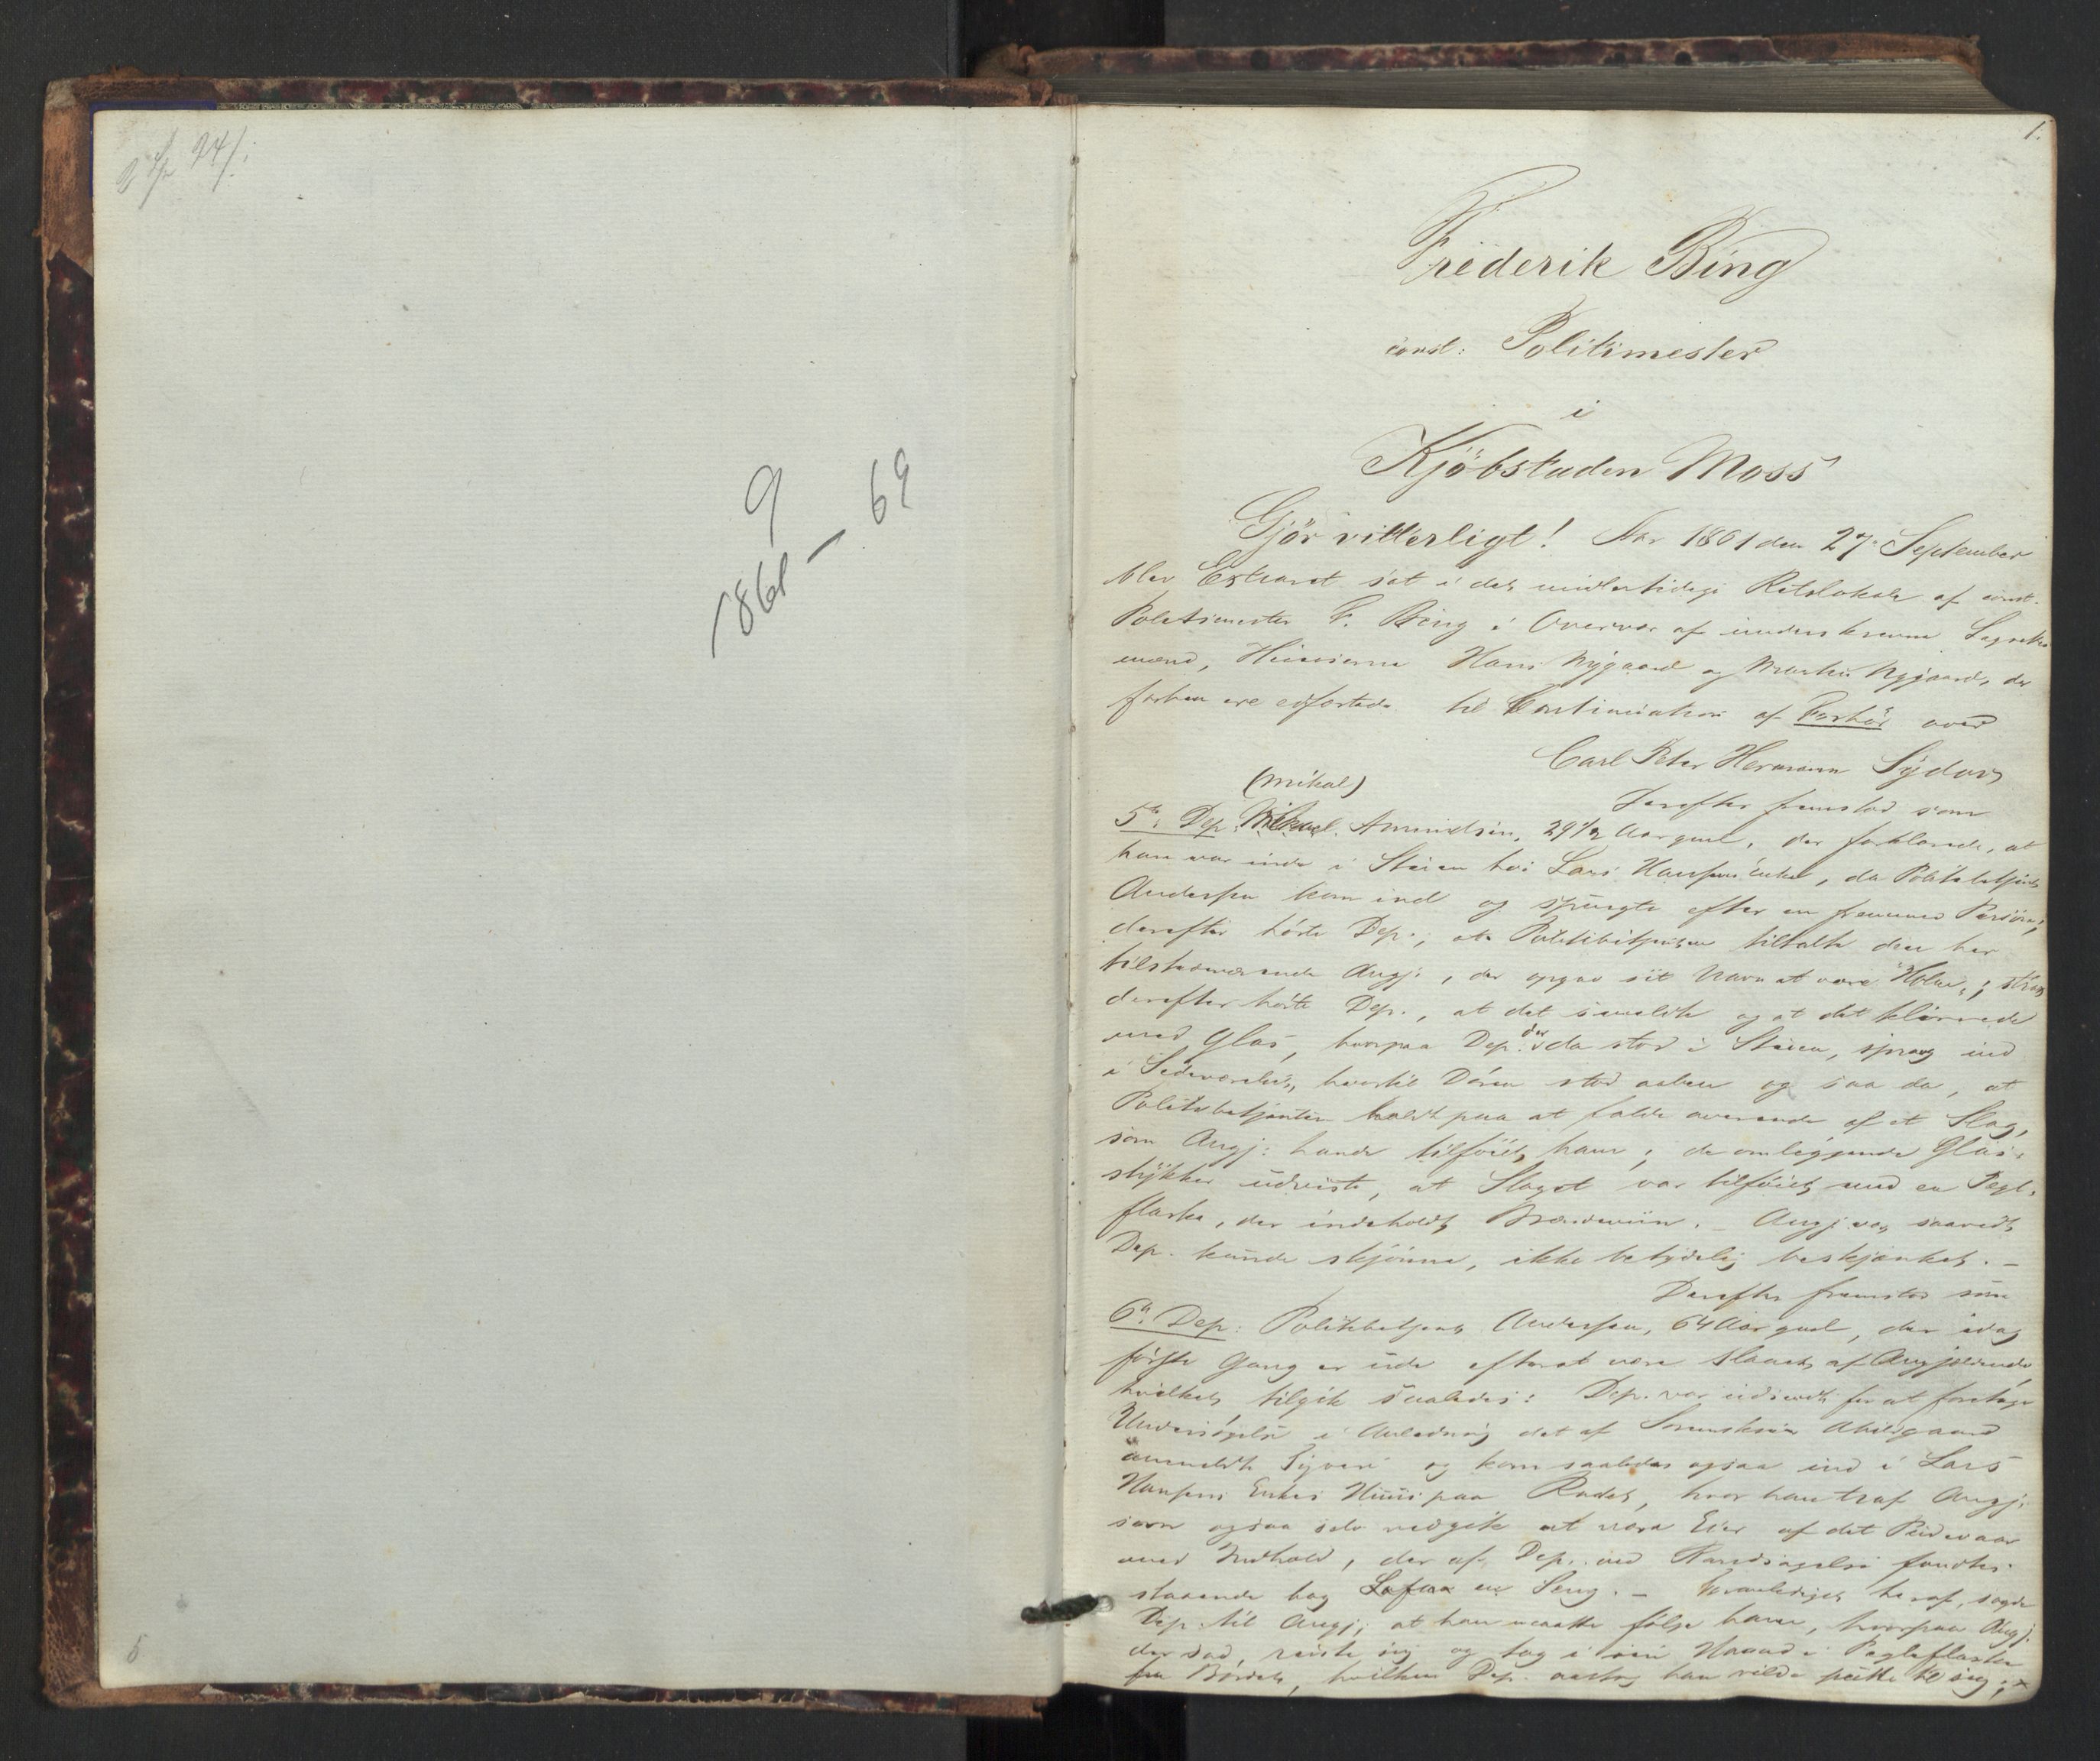 9
1861 — 69
5
1.
Frederik Bing
const: Politimester
i
Kjöbstaden Moss
Gjör vitterligt! Aar 1861 den 27. September
blev Extraret sat i det midlertidige Retslokale af const.
Politimester F. Bing i Overvær af underskrevne Lagrettes
mænd, Husierne Hans Nygaard og Martin Nygaard, der
forhen ere edfæstede til Continuation af Forhör over
Carl Peter Hermann Sydow
Derefter fremstod som
(Mikal)
5te Dep: Mikael Amundsen, 29½ Aar gml, der forklarede, at
han var inde i Stuen hos Lars Hansens Enke, da Politibetjent
Andersen kom ind og spurgte efter en fremmed Person;
derefter hörte Dep., at Politibetjenten tiltalte den her
tilstedeværende Angj:, der opgav sit Navn at være Holm; strax
derefter hörte Dep., at det smældte og at det klirrede
med Glas, hvorpaa Dep. der da stod i Stuen, sprang ind
i Sideværelset, hvortil Dören stod aaben og saa da, at
Politibetjenten holdt paa at falde overende af et Slag,
som Angj: havde tilföiet ham; de omliggende Glas-
stykker udviste, at Slaget var tilföiet med en Pægl-
flaske, der indeholdt Brændeviin. – Angj. var saavidt
Dep. kunde skjönne, ikke betydelig beskjænket. –
Derefter fremstod som
6te Dep: Politibetjent Andersen, 64 Aar gml, der idag
förste Gang er ude efterat være slaaet af Angjældende,
hvilket tilgik saaledes: Dep. var udsendt for at foretage
Undersögelse i Anledning det af Sorenskriver Abildgaard
anmeldte Tyveri og kom saaledes ogsaa ind i Lars
Hansens Enkes Huus paa Radet, hvor han traf Angj.
som ogsaa selv vedgik at være Eier af det Pudevaar
med Indhold, der af Dep. ved Randsagelse fandtes
staaende bag en Seng. – heraf, sagde
Dep. til Angj; at han maatte fölge ham, hvorpaa Angj.
der sad, reiste sig og tog i sin Haand Pægleflasken
fra Bordet, hvilken Dep. han vilde putte til sig;